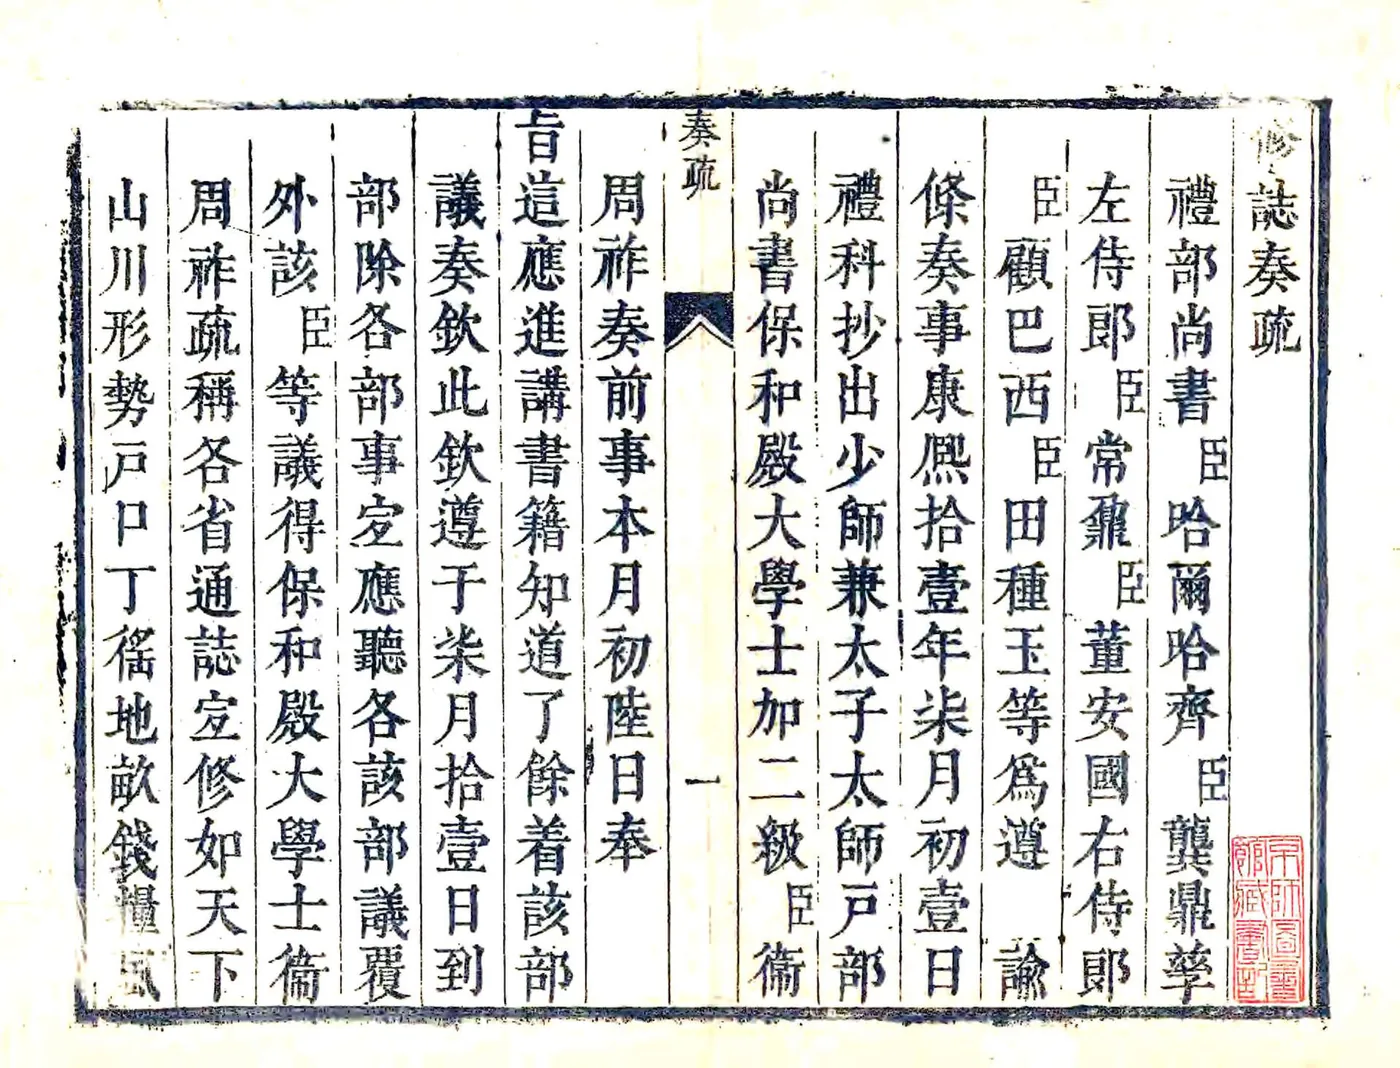 修志奏疏
禮部尚書臣哈爾哈齊臣龔鼎孳
左侍郎臣常鼐臣董安國右侍郎
臣顧巴西臣田種玉等為遵 諭
條奏事康熈拾壹年柒月初壹日
禮科抄出少師兼太子太師戶部
尚書保和殿大學士加二級臣衞
奏疏
一
周祚奏前事本月初陸日奉
旨這應進講書籍知道了餘着該部
議奏欽此欽遵于柒月拾壹日到
部除各部事宐應聽各該部議覆
外該臣等議得保和殿大學士衞
周祚疏稱各省通誌宐修如天下
山川形勢戶口丁徭地畝錢糧風
京師圖書館藏書記